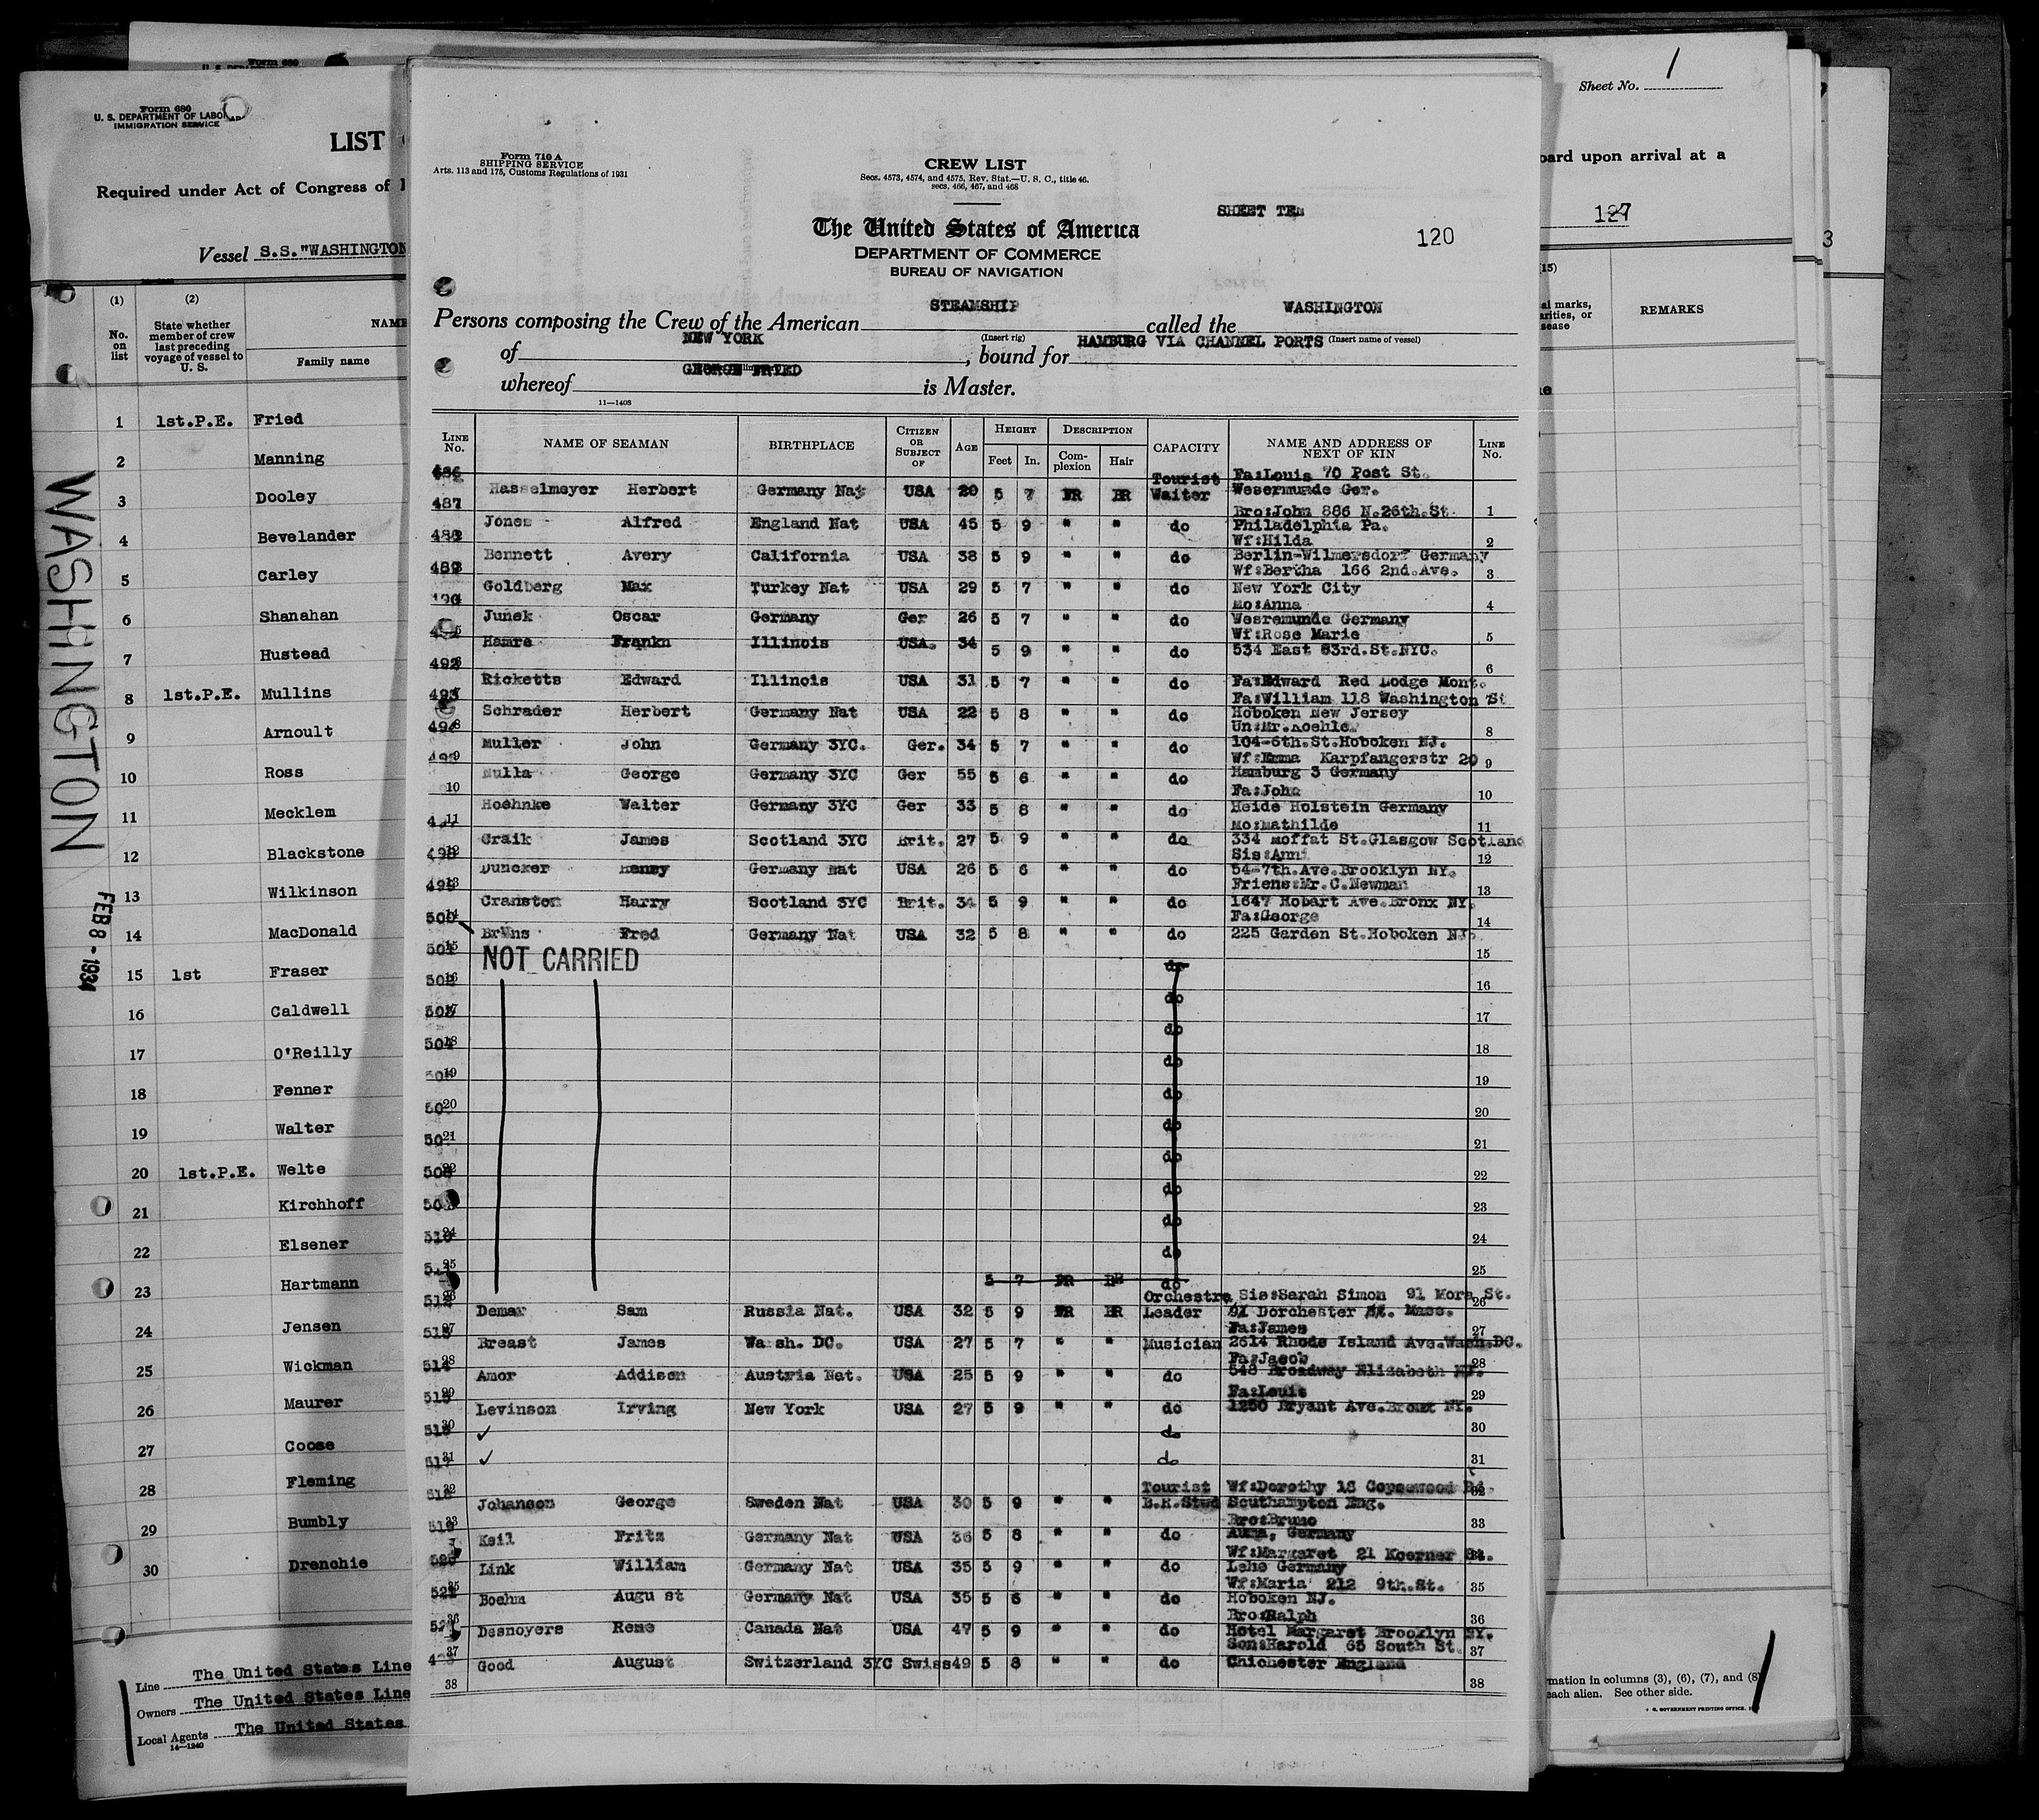 Form 680
U. S. DEPARTMENT OF LABOR
IMMIGRATION SERVICE
LIST
Required under Act of Congress of
Vessel S.S. "WASHINGTON
(1) (2)
No. on list
State whether member of crew last preceding voyage of vessel to U. S.
NAME
Family name
1 1st.P.E. Fried
2 Manning
3 Dooley
4 Bevelander
5 Carley
6 Shanahan
7 Hustead
8 1st.P.E. Mullins
9 Arnoult
10 Ross
11 Mecklem
12 Blackstone
13 Wilkinson
14 MacDonald
15 1st Fraser
16 Caldwell
17 O'Reilly
18 Fenner
19 Walter
20 1st.P.E. Welte
21 Kirchhoff
22 Elsener
23 Hartmann
24 Jensen
25 Wickman
26 Maurer
27 Coose
28 Fleming
29 Bumbly
30 Drenchie
Line The United States Line
Owners The United States Line
Local Agents The United States
14—1240
WASHINGTON
FEB 8 - 1934
Form 710 A
SHIPPING SERVICE
Arts. 113 and 175, Customs Regulations of 1931
CREW LIST
Secs. 4573, 4574, and 4575, Rev. Stat.—U. S. C., title 46,
secs. 466, 467, and 468
SHEET TEN
The United States of America
120
DEPARTMENT OF COMMERCE
BUREAU OF NAVIGATION
Persons composing the Crew of the American STEAMSHIP called the WASHINGTON
(Insert rig) (Insert name of vessel)
of NEW YORK, bound for HAMBURG VIA CHANNEL PORTS
whereof GEORGE FRIED is Master.
11—1408
LINE No. NAME OF SEAMAN BIRTHPLACE CITIZEN OR SUBJECT OF AGE HEIGHT Feet In. DESCRIPTION Complexion Hair CAPACITY NAME AND ADDRESS OF NEXT OF KIN LINE No.
486 Tourist Fa:Louis 70 Post St.
Hasselmeyer Herbert Germany Nat USA 20 5 7 FR BR Waiter Wesermunde Ger. 1
487 Bro:John 886 N.26th.St.
Jones Alfred England Nat USA 45 5 9 " " do Philadelphia Pa. 2
Wf:Hilda
Bennett Avery California USA 38 5 9 " " do Berlin-Wilmersdorf Germany 3
Wf:Bertha 166 2nd.Ave.
Goldberg Max Turkey Nat USA 29 5 7 " " do New York City 4
Mo:Anna
Junek Oscar Germany Ger 26 5 7 " " do Wesremunde Germany 5
Wf:Rose Marie
Hamre Frankn Illinois USA. 34 5 9 " " do 534 East 83rd.St.NYC. 6
Ricketts Edward Illinois USA 31 5 7 " " do Fa:Edward Red Lodge Mont. 7
Fa:William 118 Washington St
Schrader Herbert Germany Nat USA 22 5 8 " " do Hoboken New Jersey 8
Un:Mr.Koehler
Muller John Germany 3YC. Ger. 34 5 7 " " do 104-6th.St.Hoboken NJ. 9
Wf:Emma Karpfangerstr 20
Mulla George Germany 3YC Ger 55 5 6 " " do Hamburg 3 Germany 10
Fa:John
Hoehnke Walter Germany 3YC Ger 33 5 8 " " do Heide Holstein Germany 11
Mo:Mathilde
Craik James Scotland 3YC Brit. 27 5 9 " " do 334 Moffat St.Glasgow Scotland 12
Sis:Anni
Duncker Henry Germany Nat USA 26 5 6 " " do 54-7th.Ave.Brooklyn NY. 13
Friens:Mr.C.Newman
Cranston Harry Scotland 3YC Brit. 34 5 9 " " do 1647 Hobart Ave.Bronx NY. 14
Fa:George
Bruns Fred Germany Nat USA 32 5 8 " " do 225 Garden St.Hoboken NJ. 15
NOT CARRIED
do 16
do 17
do 18
do 19
do 20
do 21
do 22
do 23
do 24
do 25
5 7 FR BR do
Orchestra Sis:Sarah Simon 91 Mora St. 26
Demar Sam Russia Nat. USA 32 5 9 FR BR Leader 91 Dorchester St. Mass.
Fa:James 27
Breast James Wash. DC. USA 27 5 7 " " Musician 2614 Rhode Island Ave.Wash.DC.
Fa:Jacob 28
Amor Addison Austria Nat. USA 25 5 9 " " do 548 Broadway Elizabeth NJ.
Fa:Louis 29
Levinson Irving New York USA 27 5 9 " " do 1250 Bryant Ave.Bronx NY.
✓ do 30
✓ do 31
Tourist Wf:Dorothy 18 Coysewood Rd. 32
Johanson George Sweden Nat USA 30 5 9 " " B.R.Stwd Southampton Eng.
Bro:Bruno 33
Keil Fritz Germany Nat USA 36 5 8 " " do Auma, Germany
Wf:Margaret 21 Koerner St. 34
Link William Germany Nat USA 35 5 9 " " do Lehe Germany
Wf:Maria 212 9th.St. 35
Boehm Augu st Germany Nat USA 35 5 6 " " do Hoboken NJ.
Bro:Ralph 36
Desnoyers Rene Canada Nat USA 47 5 9 " " do Hotel Margaret Brooklyn NY.
Son:Harold 65 South St. 37
Good August Switzerland 3YC Swiss 49 5 8 " " do Chichester England
38 38
Sheet No. 1
oard upon arrival at a
127
(15)
REMARKS
mation in columns (3), (6), (7), and (8)
each alien. See other side.